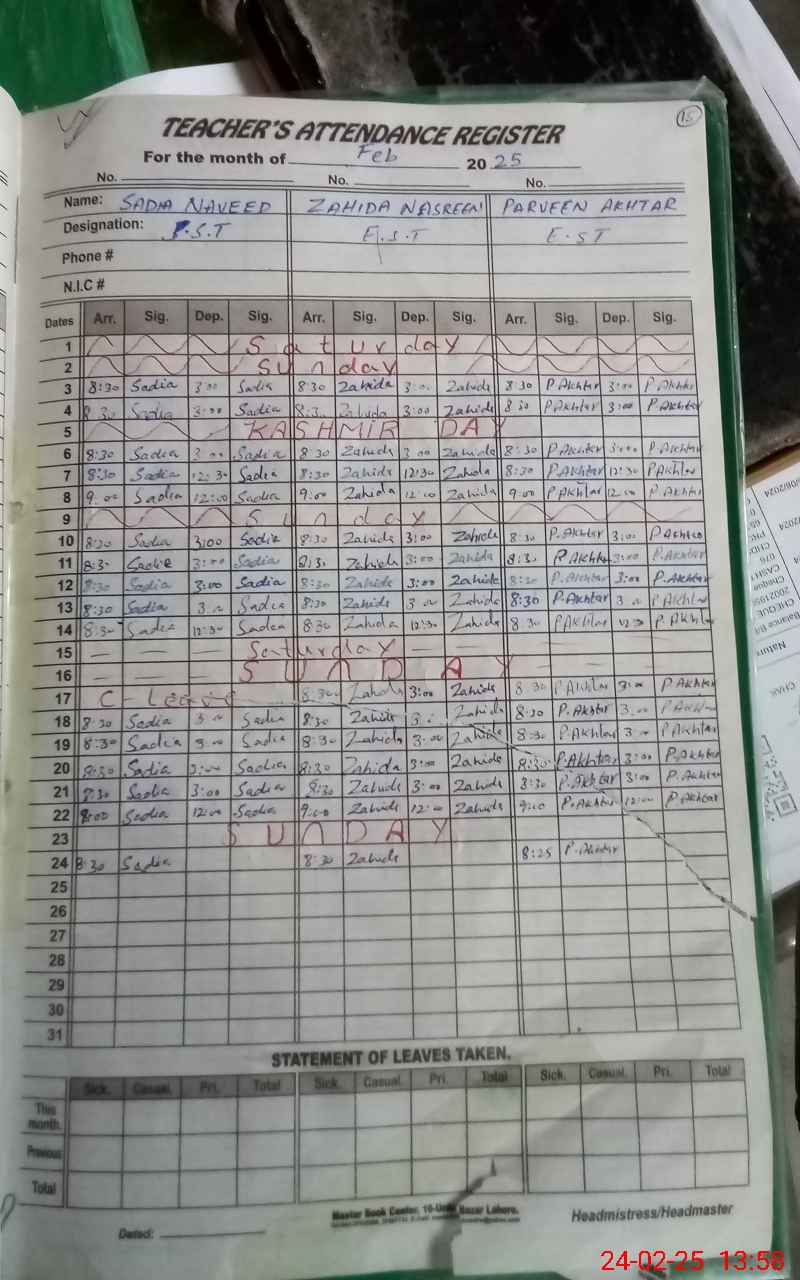 15
TEACHER'S ATTENDANCE REGISTER
For the month of Feb 2025
No. No. No.
Name: SADIA NAVEED ZAHIDA NASREEN PARVEEN AKHTAR
Designation: P.S.T E.S.T E.ST
Phone #
N.I.C #
Dates Arr. Sig. Dep. Sig. Arr. Sig. Dep. Sig. Arr. Sig. Dep. Sig.
1 Saturday
2 Sunday
3 8:30 Sadia 3:00 Sadia 8:30 Zahida 3:00 Zahida 8:30 P.Akhtar 3:00 P.Akhtar
4 8:30 Sadia 3:00 Sadia 8:30 Zahida 3:00 Zahida 8:30 P.Akhtar 3:00 P.Akhtar
5 KASHMIR DAY
6 8:30 Sadia 3:00 Sadia 8:30 Zahida 3:00 Zahida 8:30 P.Akhtar 3:00 P.Akhtar
7 8:30 Sadia 12:30 Sadia 8:30 Zahida 12:30 Zahida 8:30 P.Akhtar 12:30 P.Akhtar
8 9:00 Sadia 12:00 Sadia 9:00 Zahida 12:00 Zahida 9:00 P.Akhtar 12:00 P.Akhtar
9 Sunday
10 8:30 Sadia 3:00 Sadia 8:30 Zahida 3:00 Zahida 8:30 P.Akhtar 3:00 P.Akhtar
11 8:30 Sadia 3:00 Sadia 8:30 Zahida 3:00 Zahida 8:30 P.Akhtar 3:00 P.Akhtar
12 8:30 Sadia 3:00 Sadia 8:30 Zahida 3:00 Zahida 8:30 P.Akhtar 3:00 P.Akhtar
13 8:30 Sadia 3:00 Sadia 8:30 Zahida 3:00 Zahida 8:30 P.Akhtar 3:00 P.Akhtar
14 8:30 Sadia 12:30 Sadia 8:30 Zahida 12:30 Zahida 8:30 P.Akhtar 12:30 P.Akhtar
15 Saturday
16 SUNDAY
17 C-Leave 8:30 Zahida 3:00 Zahida 8:30 P.Akhtar 3:00 P.Akhtar
18 8:30 Sadia 3:00 Sadia 8:30 Zahida 3:00 Zahida 8:30 P.Akhtar 3:00 P.Akhtar
19 8:30 Sadia 3:00 Sadia 8:30 Zahida 3:00 Zahida 8:30 P.Akhtar 3:00 P.Akhtar
20 8:30 Sadia 3:00 Sadia 8:30 Zahida 3:00 Zahida 8:30 P.Akhtar 3:00 P.Akhtar
21 8:30 Sadia 3:00 Sadia 8:30 Zahida 3:00 Zahida 8:30 P.Akhtar 3:00 P.Akhtar
22 9:00 Sadia 12:00 Sadia 9:00 Zahida 12:00 Zahida 9:00 P.Akhtar 12:00 P.Akhtar
23 SUNDAY
24 8:30 Sadia 8:30 Zahida 8:25 P.Akhtar
25
26
27
28
29
30
31
STATEMENT OF LEAVES TAKEN.
Sick. Casual. Pri. Total Sick. Casual. Pri. Total Sick. Casual. Pri. Total
This month.
Previous
Total
Master Book Center, 10-Urdu Bazar Lahore.
Dated: Headmistress/Headmaster
24-02-25 13:58